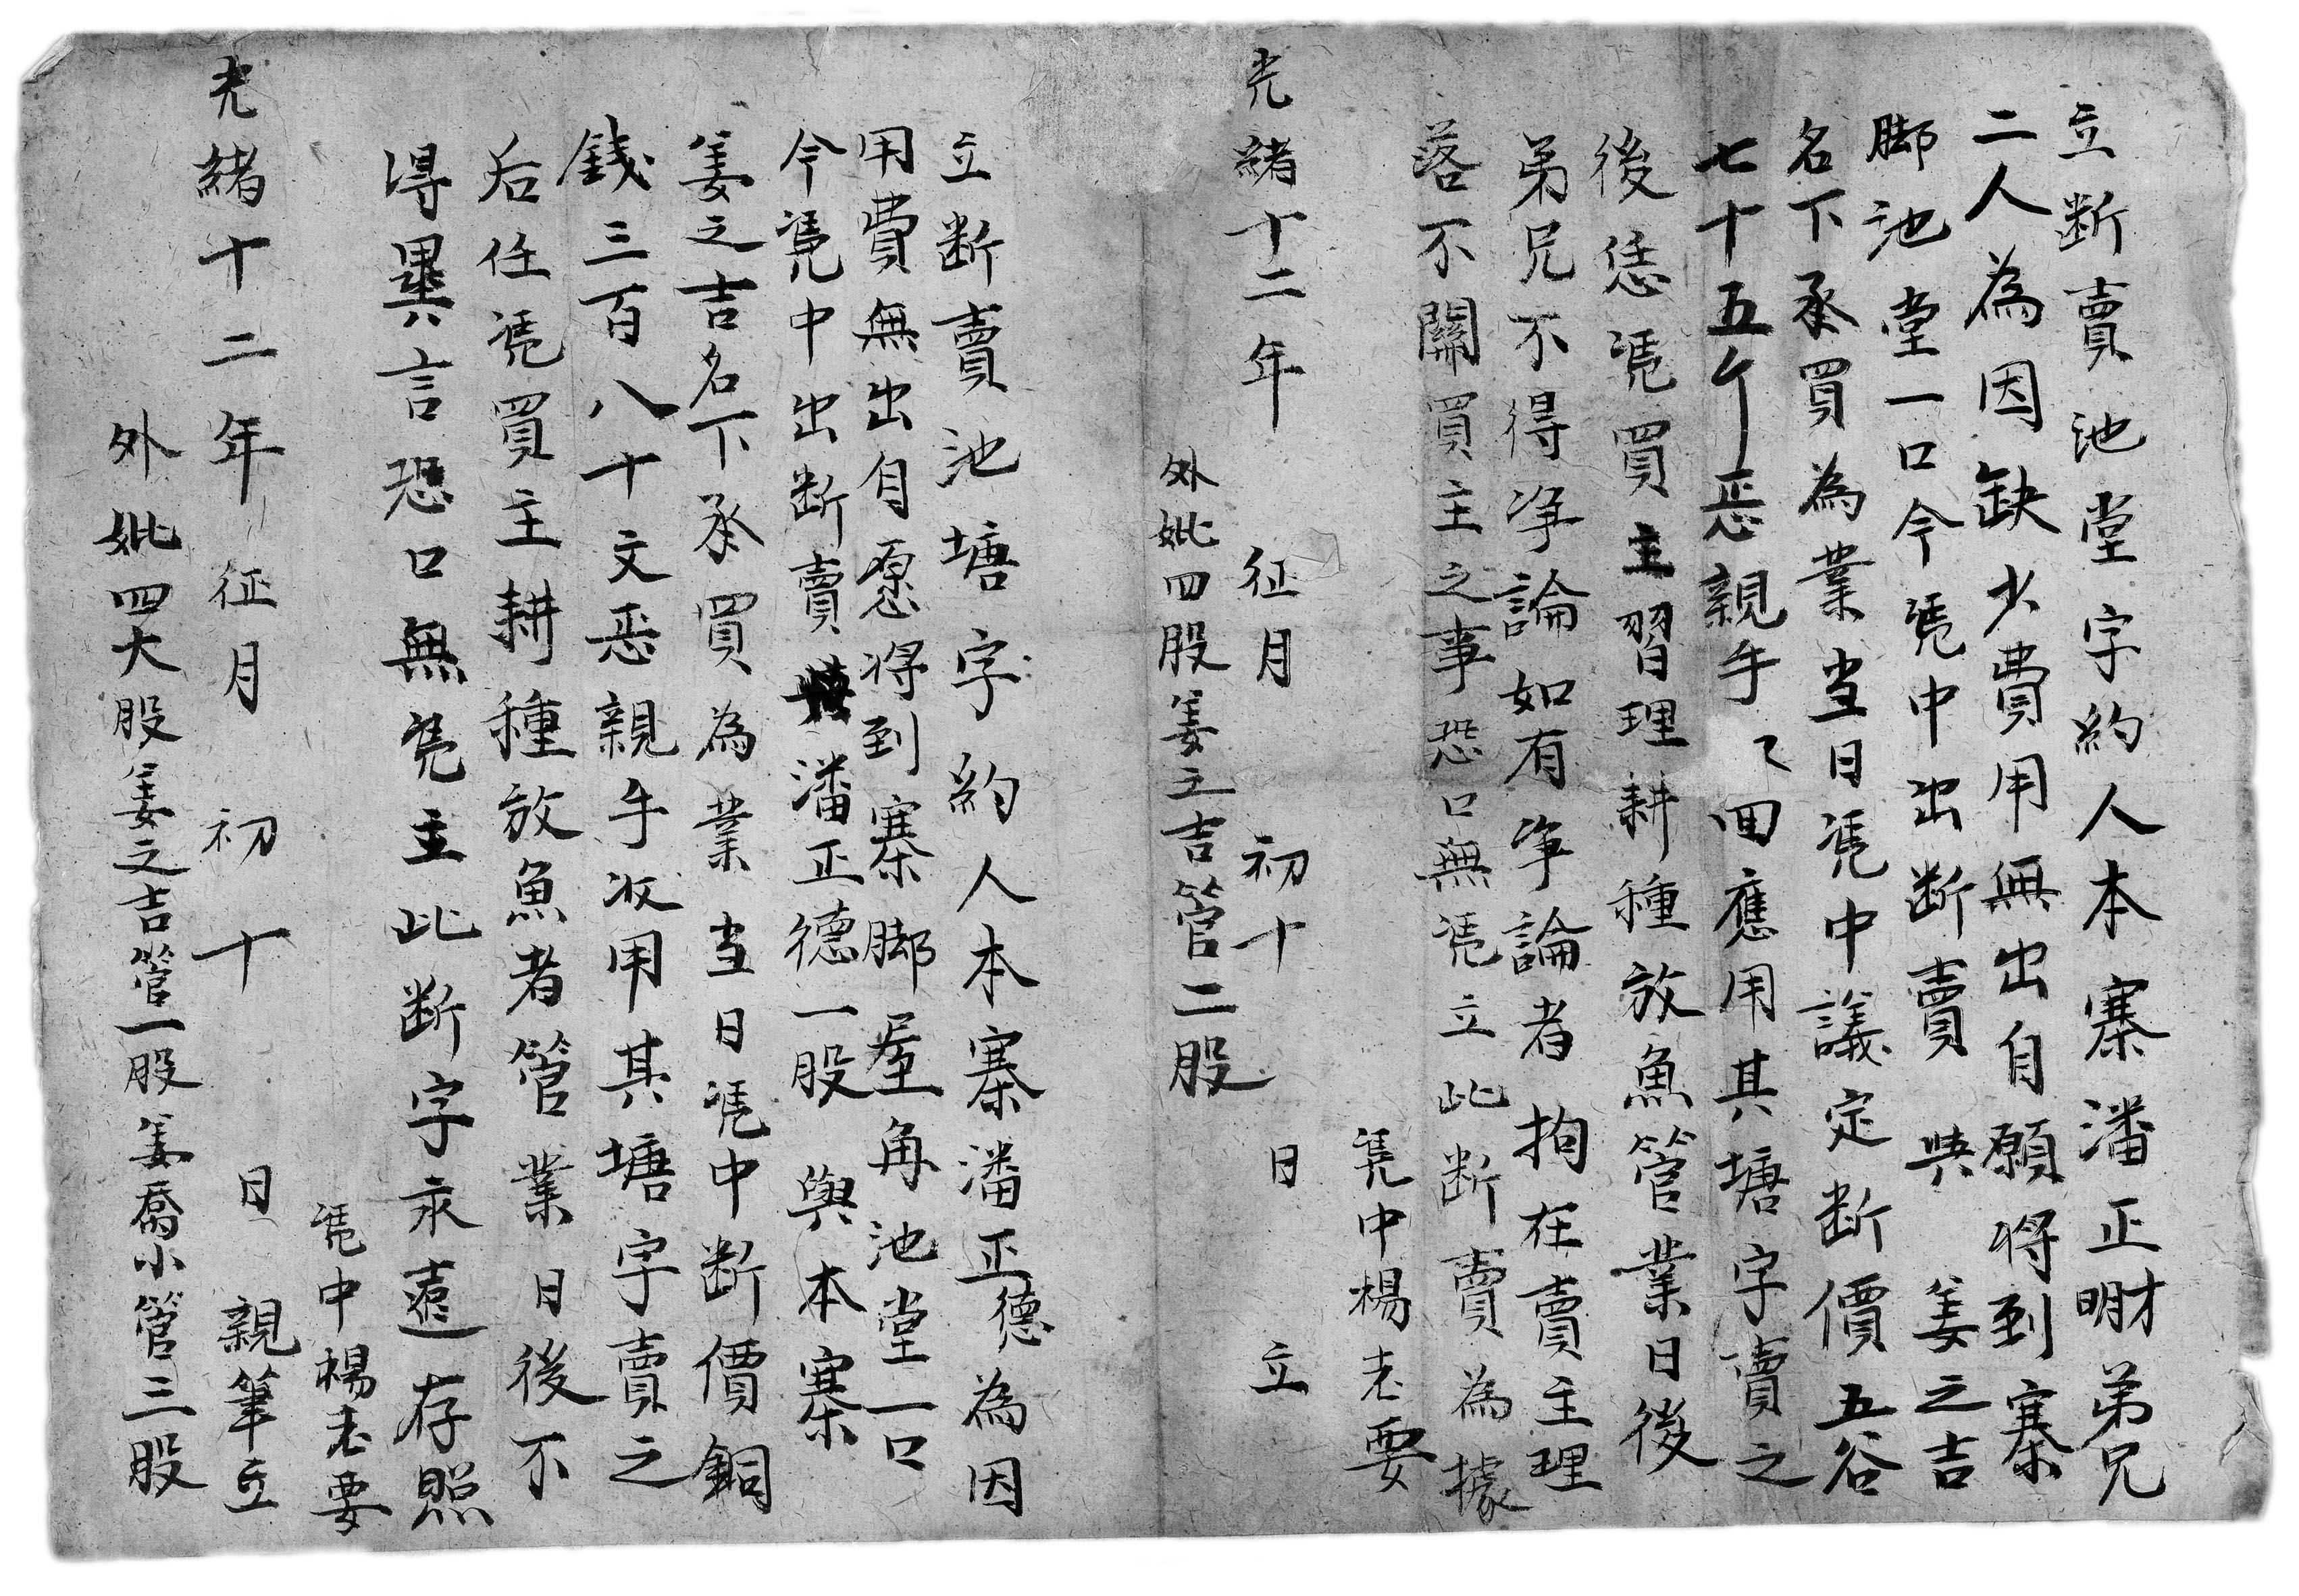 立断賣池堂字約人本寨潘正明財弟兄
二人為因缺少費用無出自願将到寨
脚池堂一口今凴中出断賣與姜之吉
名下承買為業当日凴中議定断價五谷
七十五斤亲親手〻回應用其塘字賣之
後恁凴買主習理耕種放魚管業日後
弟兄不得净論如有争論者拘在賣主理
落不關買主之事恐口無凴立此断賣為據
凴中楊老要
光緒十二年征月初十日立
外妣四股姜之吉管二股
立断賣池塘字約人本寨潘正德為因
用費無出自愿将到寨脚屋角池堂一口
今凴中出断賣潘正德一股與本寨
姜之吉名下承買為業当日凴中断價銅
錢三百八十文亲親手收用其塘字賣之
后任凴買主耕種放魚者管業日後不
得異言恐口無凴立此断字永遠存照
凴中楊老要
光緒十二年征月初十日親筆立
外妣四大股姜之吉管一股姜喬小管三股